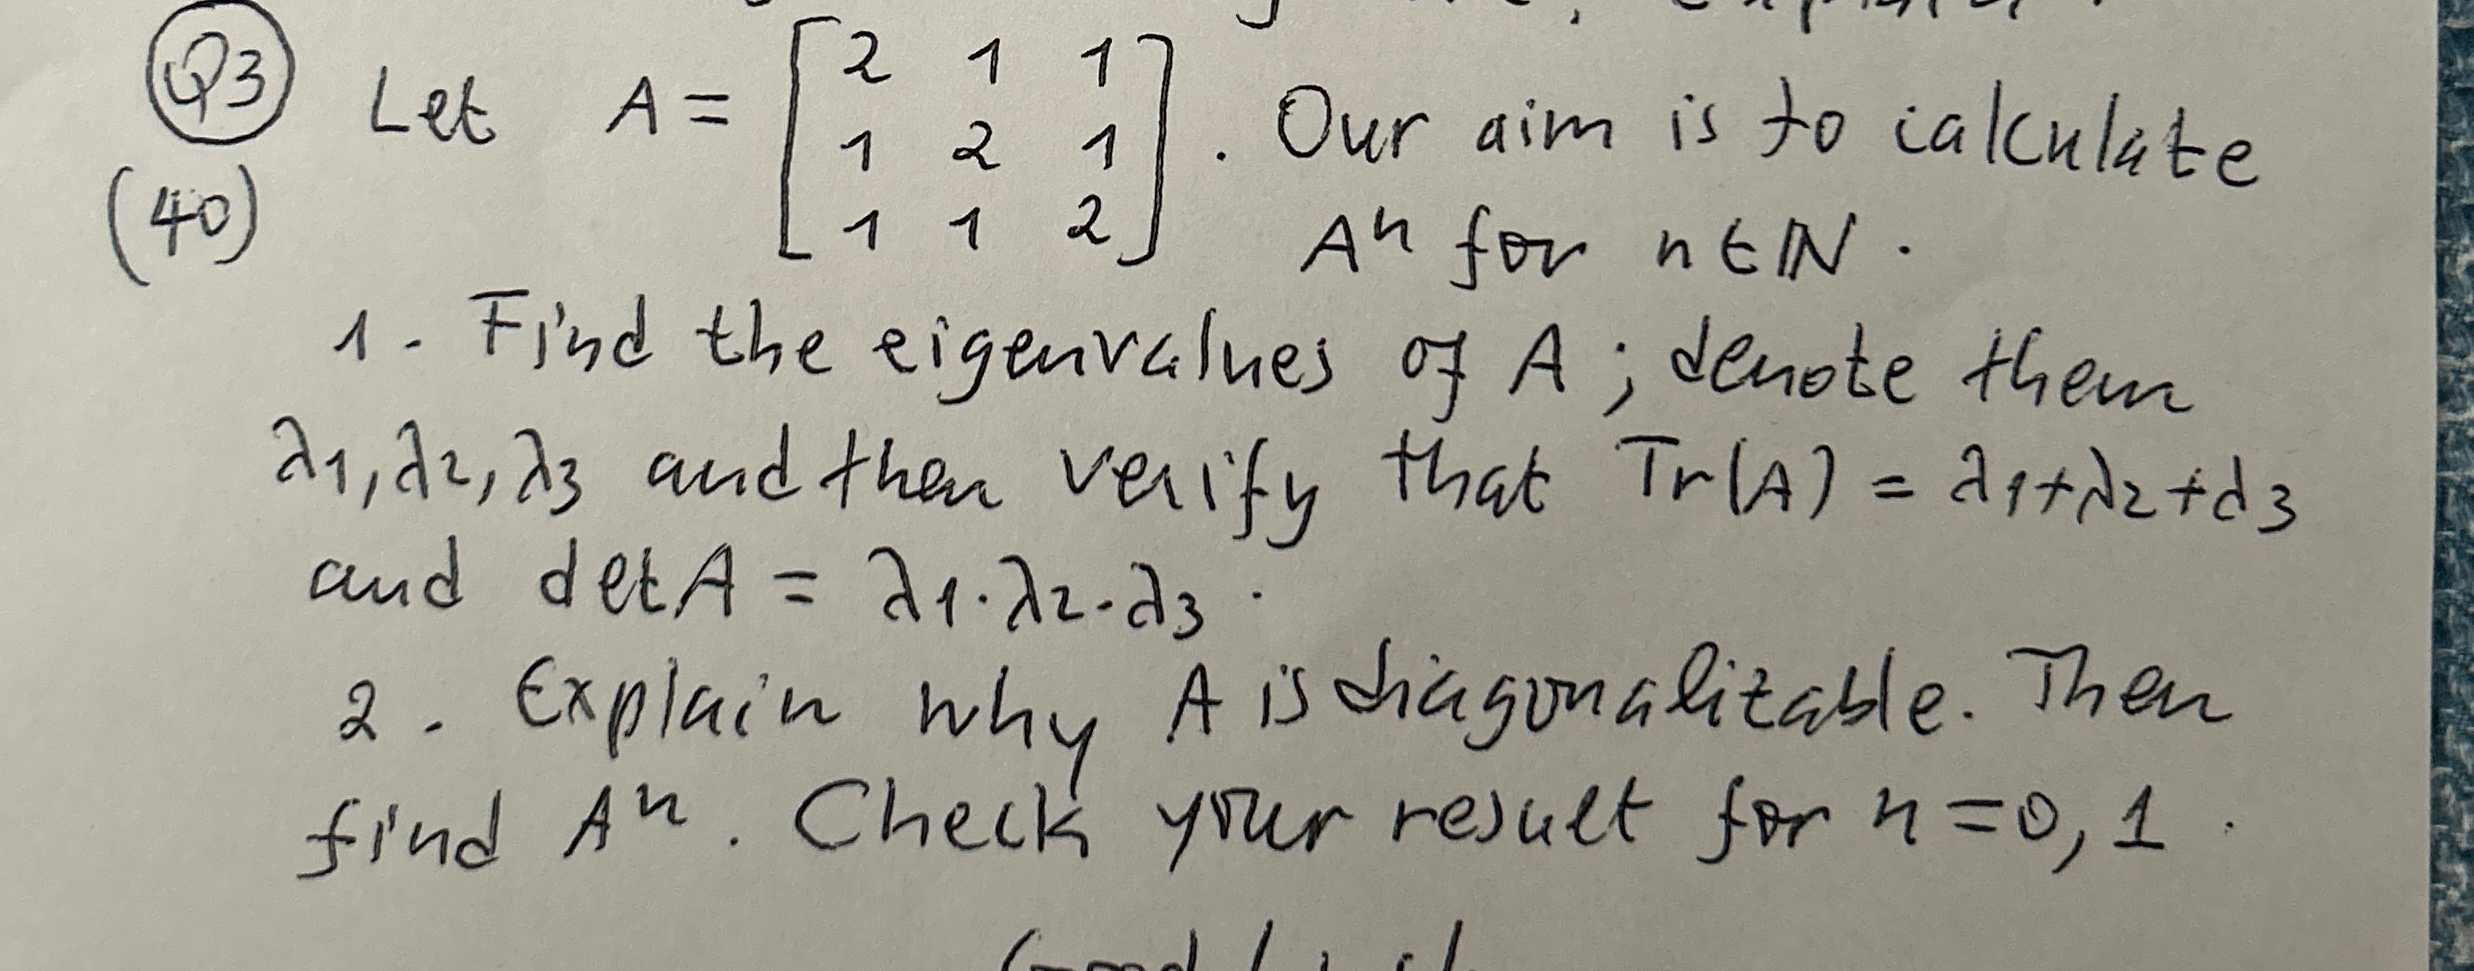 Q3 Let A = [2 1 1
1 2 1
1 1 2]. Our aim is to calculate
(40) Aⁿ for n ∈ ℕ.
1. Find the eigenvalues of A; denote them
λ1, λ2, λ3 and then verify that Tr(A) = λ1+λ2+λ3
and det A = λ1·λ2·λ3.
2. Explain why A is diagonalizable. Then
find Aⁿ. Check your result for n=0, 1.